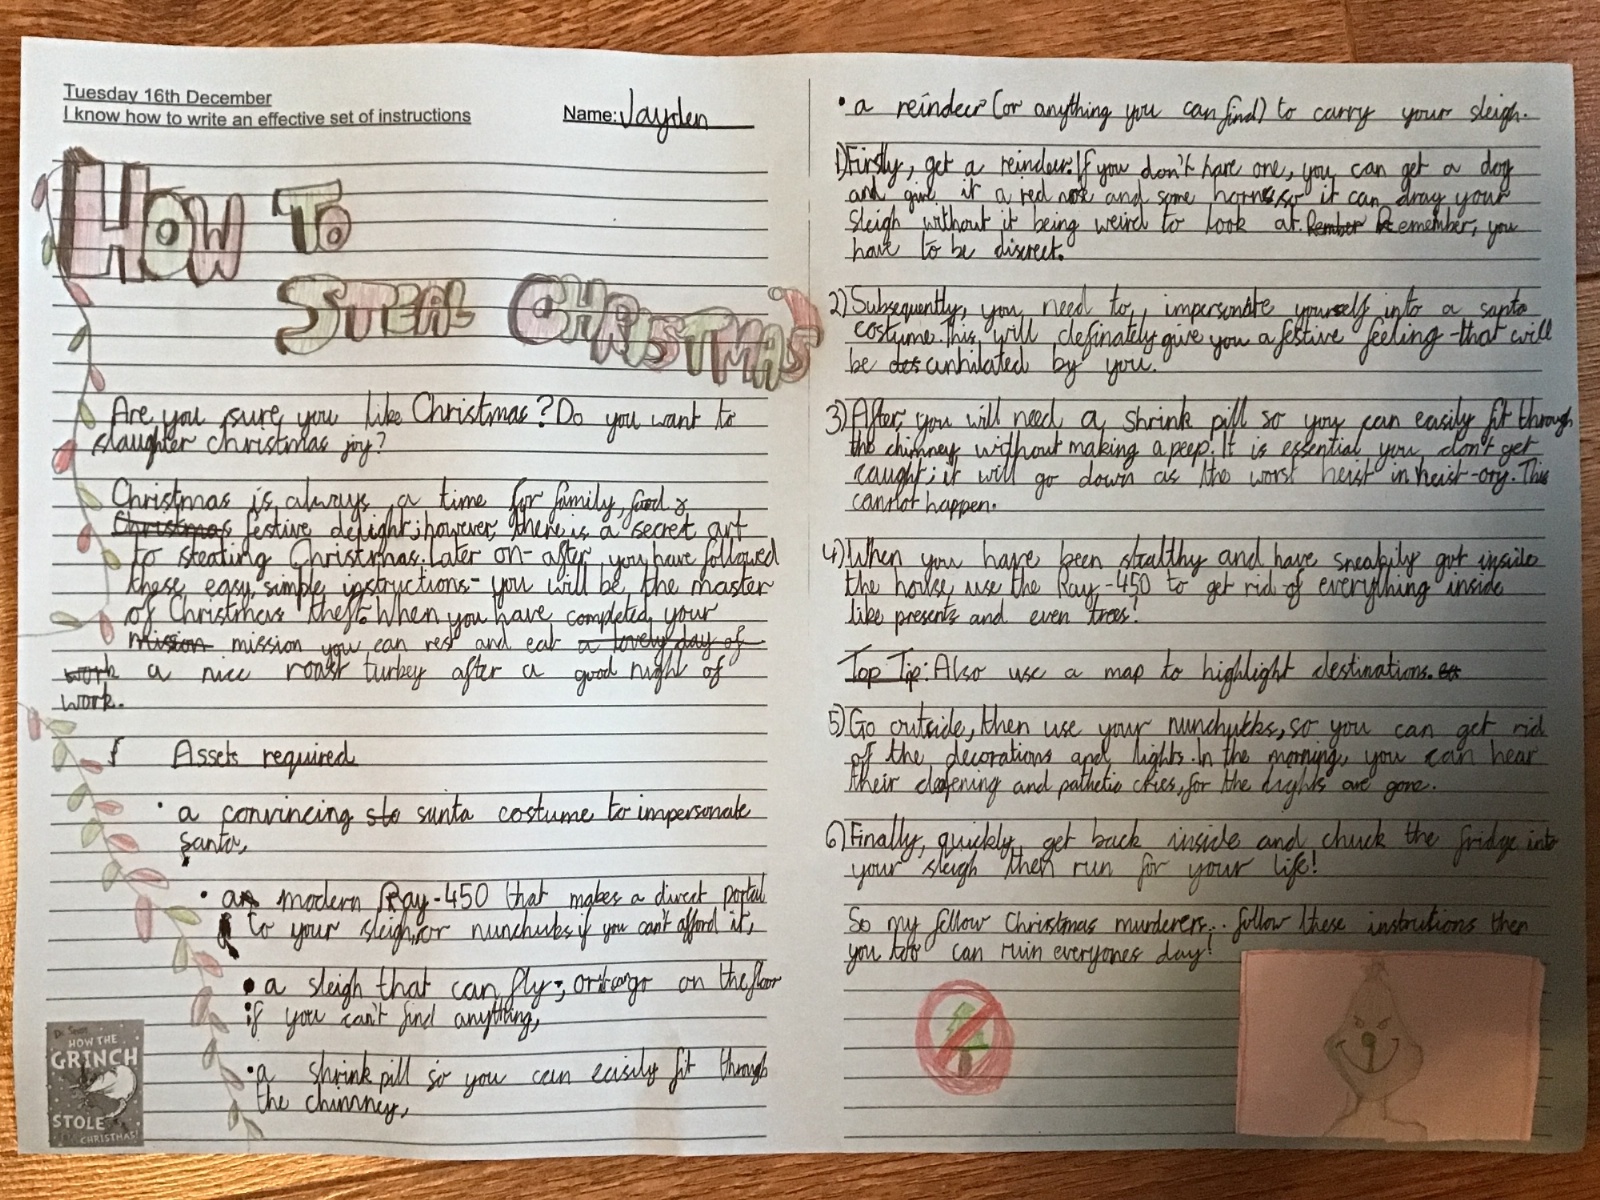 Tuesday 16th December
I know how to write an effective set of instructions
Name: Jayden
HOW TO
STEAL CHRISTMAS
Are you sure you like Christmas? Do you want to
slaughter christmas joy?
Christmas is always a time for family, food &
Christmas festive delight; however, there is a secret art
to stealing Christmas. Later on - after you have followed
these easy, simple instructions - you will be the master
of Christmas theft. When you have completed your
mission mission you can rest and eat a lovely day of
work a nice roast turkey after a good night of
work.
Assets required
• a convincing sto santa costume to impersonate
santa,
• an modern Ray-450 that makes a direct portal
to your sleigh, or nunchubs if you can't afford it,
• a sleigh that can fly; or to go on the floor
if you can't find anything,
• a shrink pill so you can easily fit through
the chimney,
Dr. Seuss
HOW THE
GRINCH
STOLE
CHRISTMAS!
• a reindeer (or anything you can find) to carry your sleigh.
1) Firstly, get a reindeer. If you don't have one, you can get a dog
and give it a red nose and some horns, so it can drag your
sleigh without it being weird to look at. Rember Remember, you
have to be discreet.
2) Subsequently, you need to, impersonate yourself into a santa
costume. This will definately give you a festive feeling - that will
be des anhilated by you.
3) After, you will need a shrink pill so you can easily fit through
the chimney without making a peep. It is essential you don't get
caught; it will go down as the worst heist in heist-ory. This
cannot happen.
4) When you have been stealthy and have sneakily got inside
the house, use the Ray-450 to get rid of everything inside
like presents and even trees!
Top Tip: Also use a map to highlight destinations.
5) Go outside, then use your nunchukks, so you can get rid
of the decorations and lights. In the morning, you can hear
their deafening and pathetic cries, for the lights are gone.
6) Finally, quickly get back inside and chuck the fridge into
your sleigh then run for your life!
So my fellow Christmas murderers... follow these instrutions then
you too can ruin everyones day!